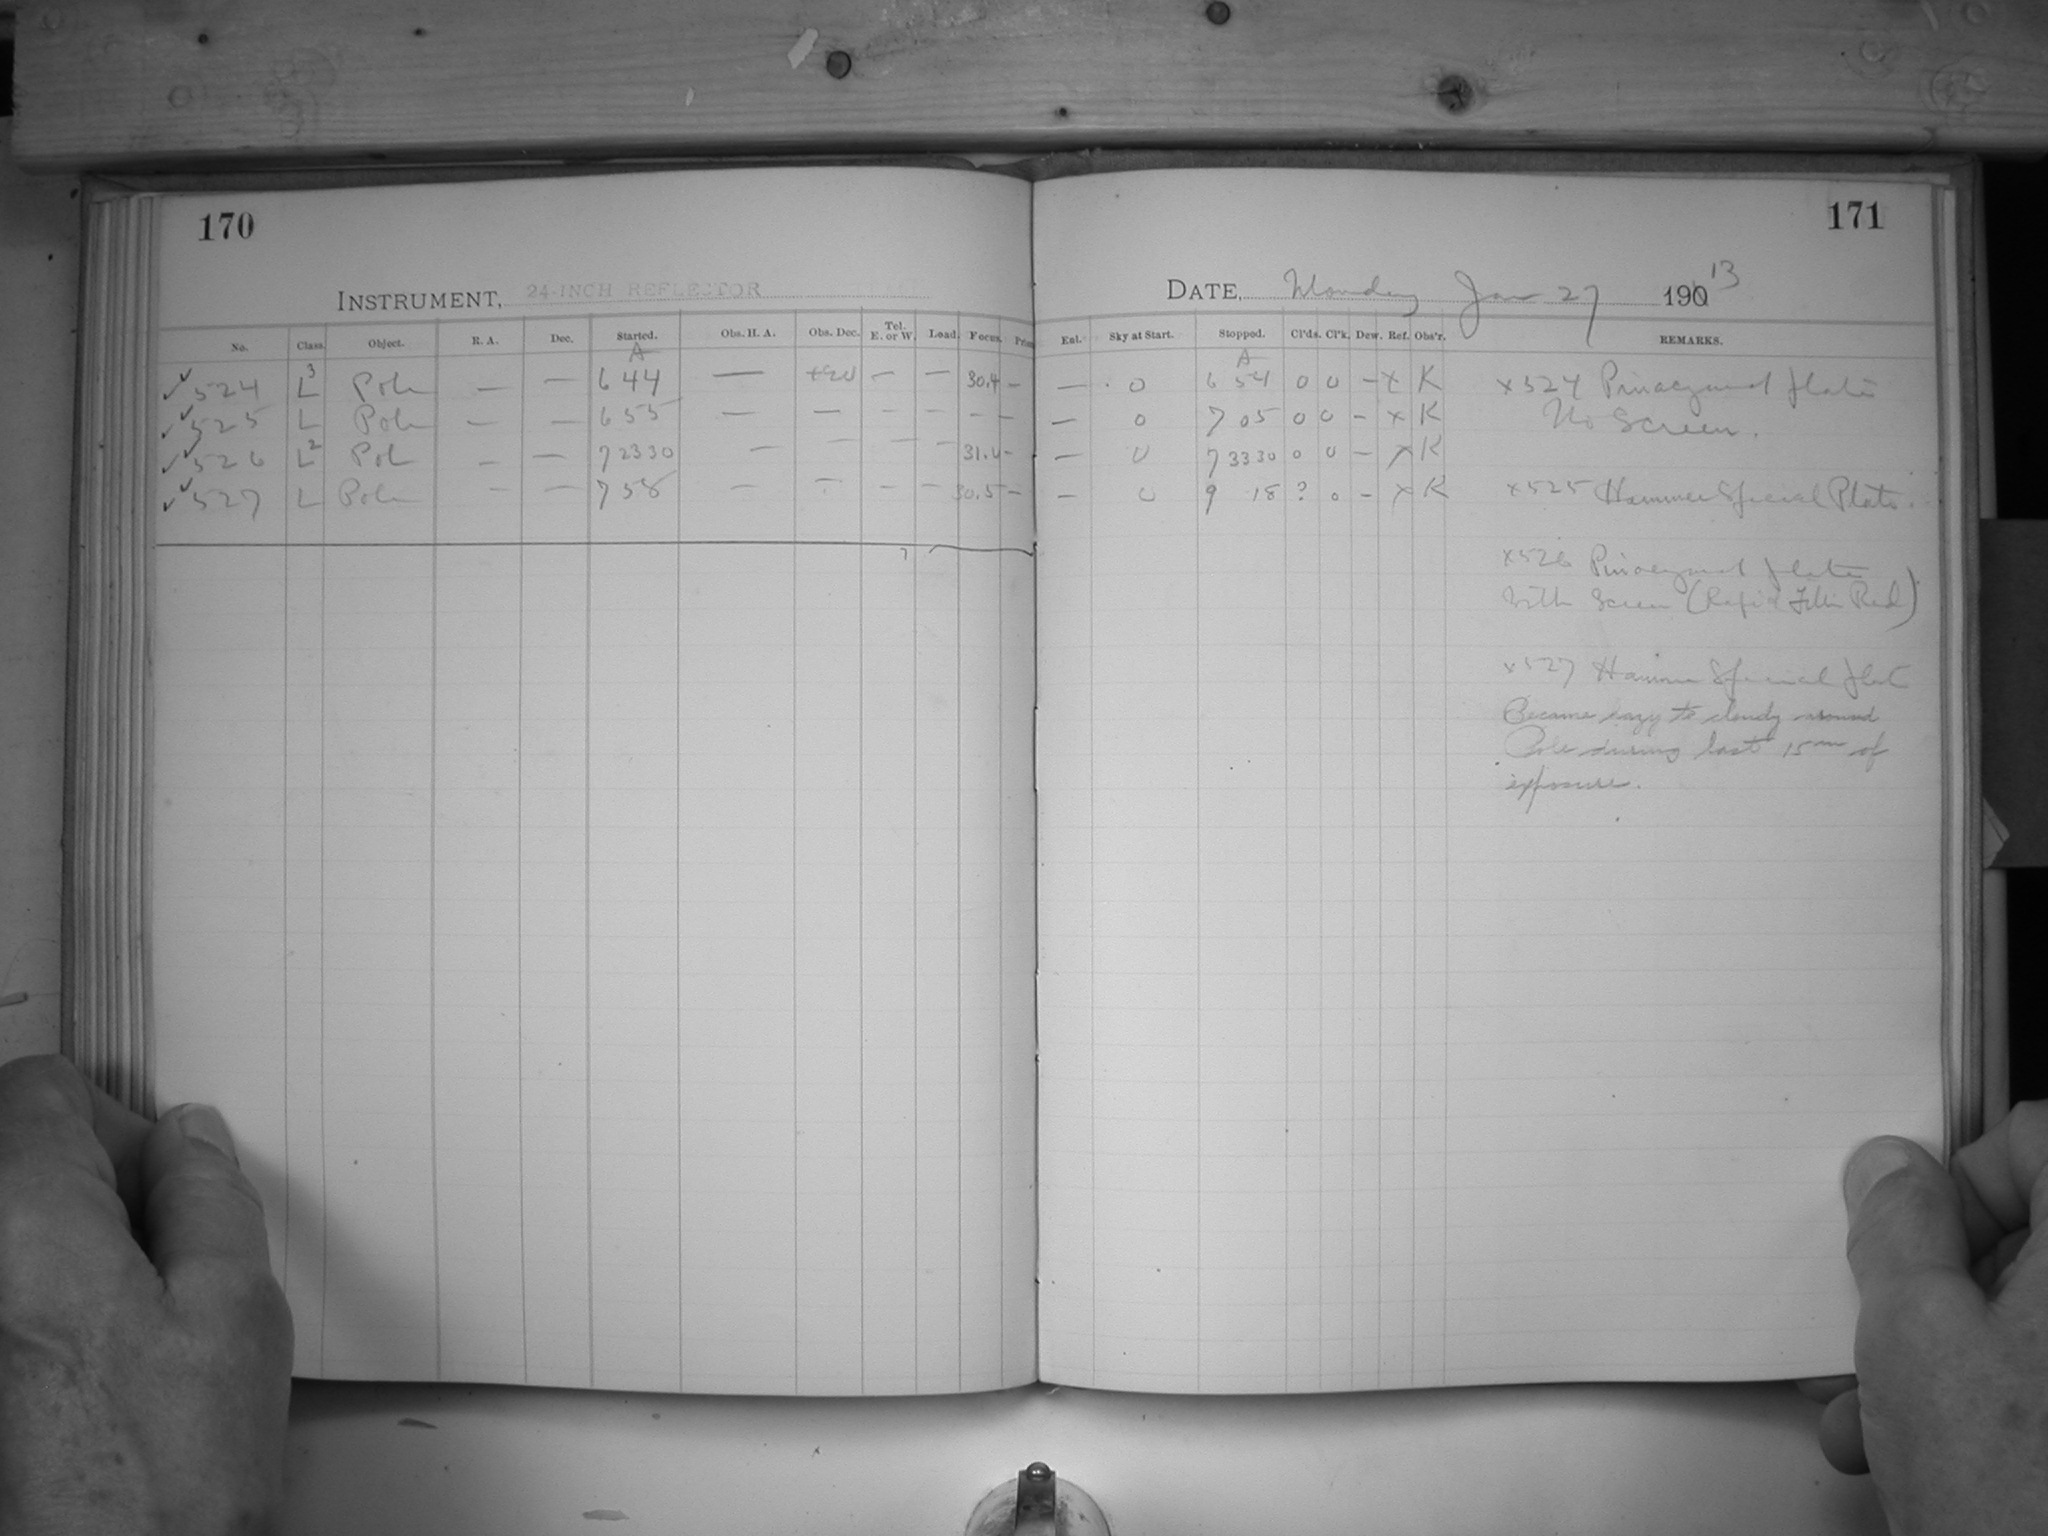 170
INSTRUMENT, 24-INCH REFLECTOR
No. Class. Object. R. A. Dec. Started. Obs. H. A. Obs. Dec. Tel. E. or W. Load. Focus.
A
524 L3 Pole — — 6 44 — +90 — — 30.4 —
525 L Pole — — 6 55 — — — — — —
526 L2 Pole — — 7 23 30 — — — — 31.0 —
527 L Pole — — 7 58 — — — — 30.5 —
171
DATE, Monday Jan 27 1913
Eal. Sky at Start. Stopped. Cl'ds. Cl'k. Dew. Ref. Obs'r. REMARKS.
A
— 0 6 54 0 0 — x K
— 0 7 05 0 0 — x K
— 0 7 33 30 0 0 — x K
— 0 9 18 ? 0 — x K
x524 Pinacyanol plate
No Screen.
x525 Hammer Special Plate.
x526 Pinacyanol plate
With Screen (Rapid Filter Red)
x527 Hammer Special plate
Became hazy to cloudy around
Pole during last 15m of
exposure.